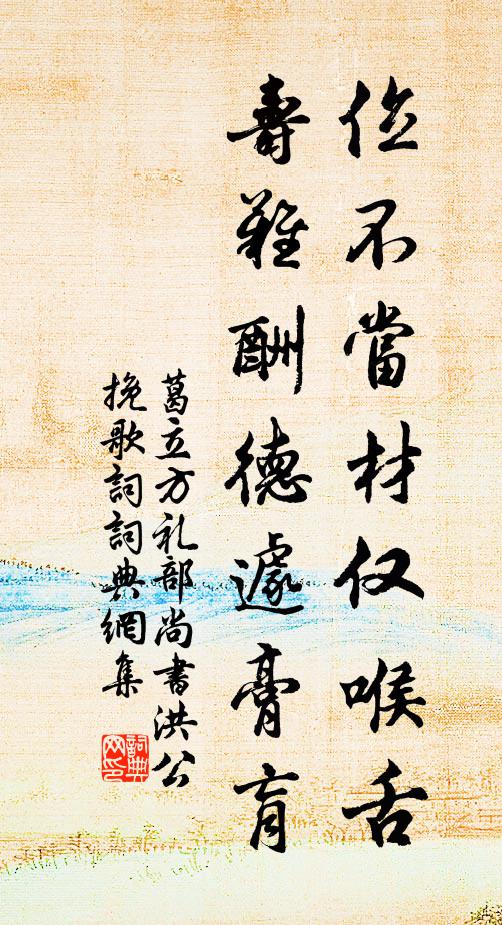 位不當材仅喉舌
壽難酬德遽膏肓
葛立方礼部尚書洪公
挽歌詞詞典網集
詞典
网印